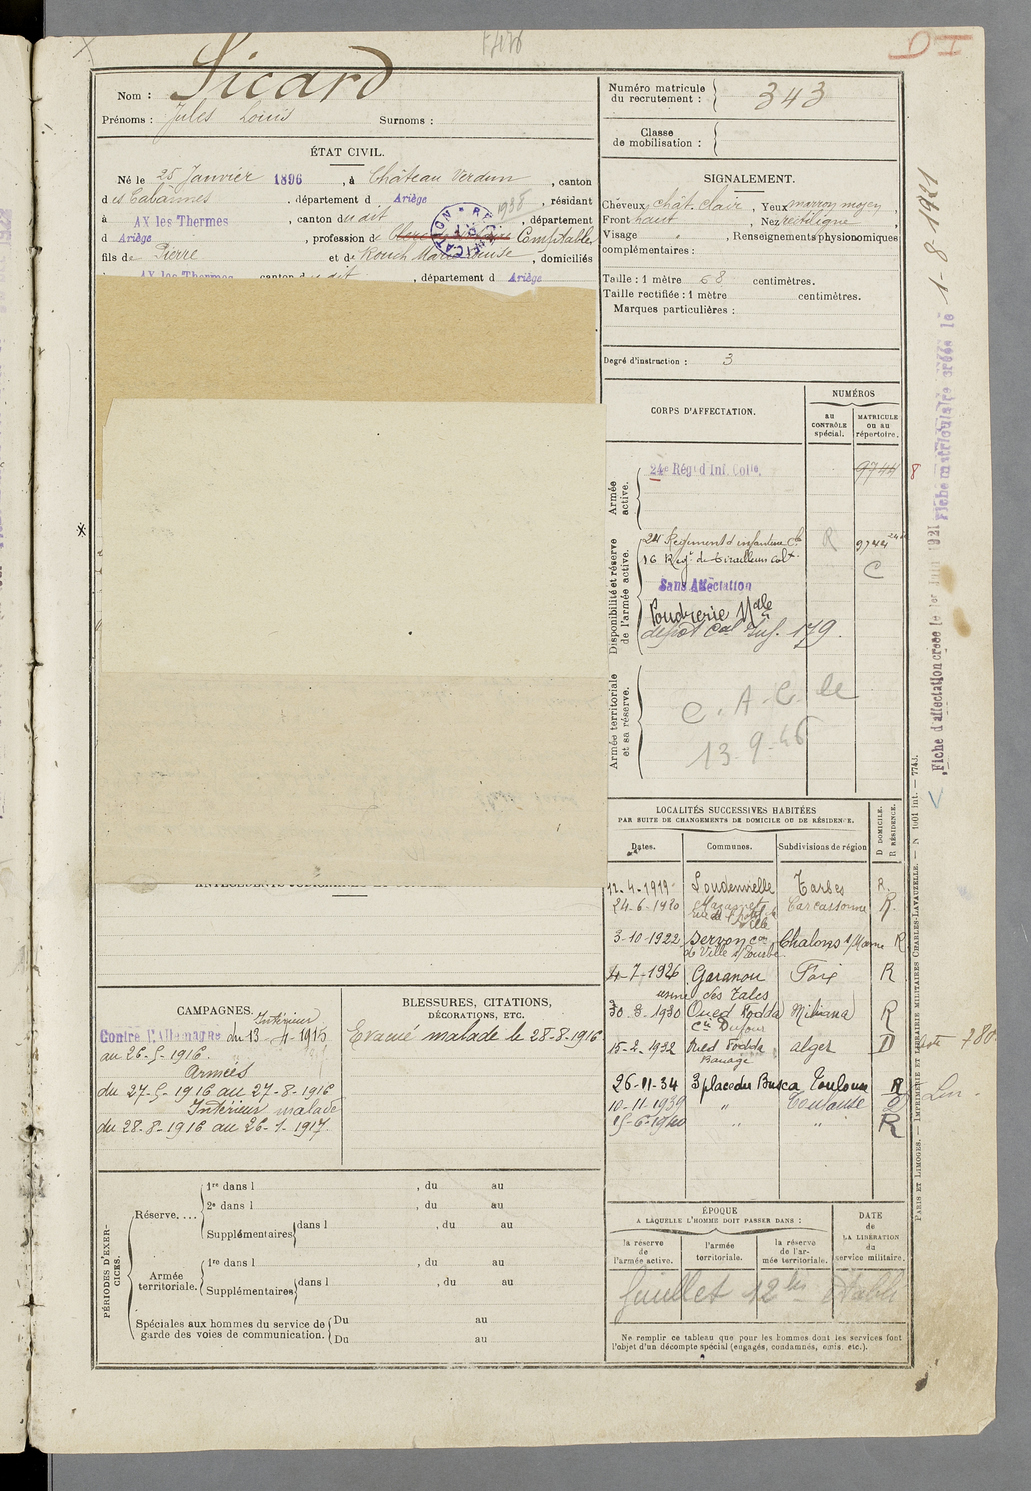 DI
Nom : Sicard
Prénoms : Jules Louis Surnoms :
ÉTAT CIVIL.
Né le 25 Janvier 1896, à Château Verdun, canton
des Cabannes, département d Ariège, résidant
à AX les Thermes, canton dudit 1938, département
d Ariège, profession de Comptable
fils de Pierre et de Rouch Marie Louise, domiciliés
AX les Thermes canton dudit, département d Ariège
CAMPAGNES.
Intérieur
Contre l'Allemagne du 13-4-1915
au 26-5-1916.
Armées
du 27-5-1916 au 27-8-1916
Intérieur malade
du 28-8-1916 au 26-1-1917.
BLESSURES, CITATIONS,
DÉCORATIONS, ETC.
Evacué malade le 28-8-1916
PÉRIODES D'EXERCICES.
Réserve....
1re dans l , du au
2e dans l , du au
Supplémentaires dans l , du au
Armée
territoriale.
1re dans l , du au
Supplémentaires dans l , du au
Spéciales aux hommes du service de
garde des voies de communication.
Du au
Du au
Numéro matricule
du recrutement : 343
Classe
de mobilisation :
SIGNALEMENT.
Cheveux chât. clair, Yeux marron moyen,
Front haut Nez rectiligne,
Visage " , Renseignements physionomiques
complémentaires :
Taille : 1 mètre 68 centimètres.
Taille rectifiée : 1 mètre centimètres.
Marques particulières :
Degré d'instruction : 3
CORPS D'AFFECTATION.
NUMÉROS
au
CONTRÔLE
spécial.
MATRICULE
ou au
répertoire.
Armée
active.
24e Rég d Inf. Colle. 9744 8
Disponibilité et réserve
de l'armée active.
24 Régiment d'infanterie Cle R 9744
16 Regt de tirailleurs colx C
Sans Affectation
Poudrerie Nale
dépôt Cal Inf. 179.
Armée territoriale
et sa réserve.
C. A. C. le
13-9-46
LOCALITÉS SUCCESSIVES HABITÉES
PAR SUITE DE CHANGEMENTS DE DOMICILE OU DE RÉSIDENCE.
Dates. Communes. Subdivisions de région D DOMICILE. R RÉSIDENCE.
12-4-1919 Loudenvielle Tarbes R.
24-6-1920 Mazamet Carcassonne R.
rue de l'hôtel de
ville
3-10-1922 Servon con Chalons s/Marne R
de Ville s/Tourbe
4-7-1926 Garanou Foix R
usine des Talcs
30-8-1930 Oued Fodda Miliana R
Cté Dufour
15-2-1932 Oued Fodda alger D
Barrage
26-11-34 3 place du Busca Toulouse R
10-11-1939 " Toulouse
15-6-1940 " " R
ÉPOQUE
A LAQUELLE L'HOMME DOIT PASSER DANS :
la réserve
de
l'armée active.
l'armée
territoriale.
la réserve
de l'armée territoriale.
DATE
de
LA LIBÉRATION
du
service militaire.
Feuillet 12 bis établi
Ne remplir ce tableau que pour les hommes dont les services font
l'objet d'un décompte spécial (engagés, condamnés, omis, etc.).
Fiche matriculaire créée le 1-8-1921
Fiche d'affectation créée le 1er Juin 1921
PARIS ET LIMOGES. — IMPRIMERIE ET LIBRAIRIE MILITAIRES CHARLES-LAVAUZELLE. — N° 1001 int. — 7743.